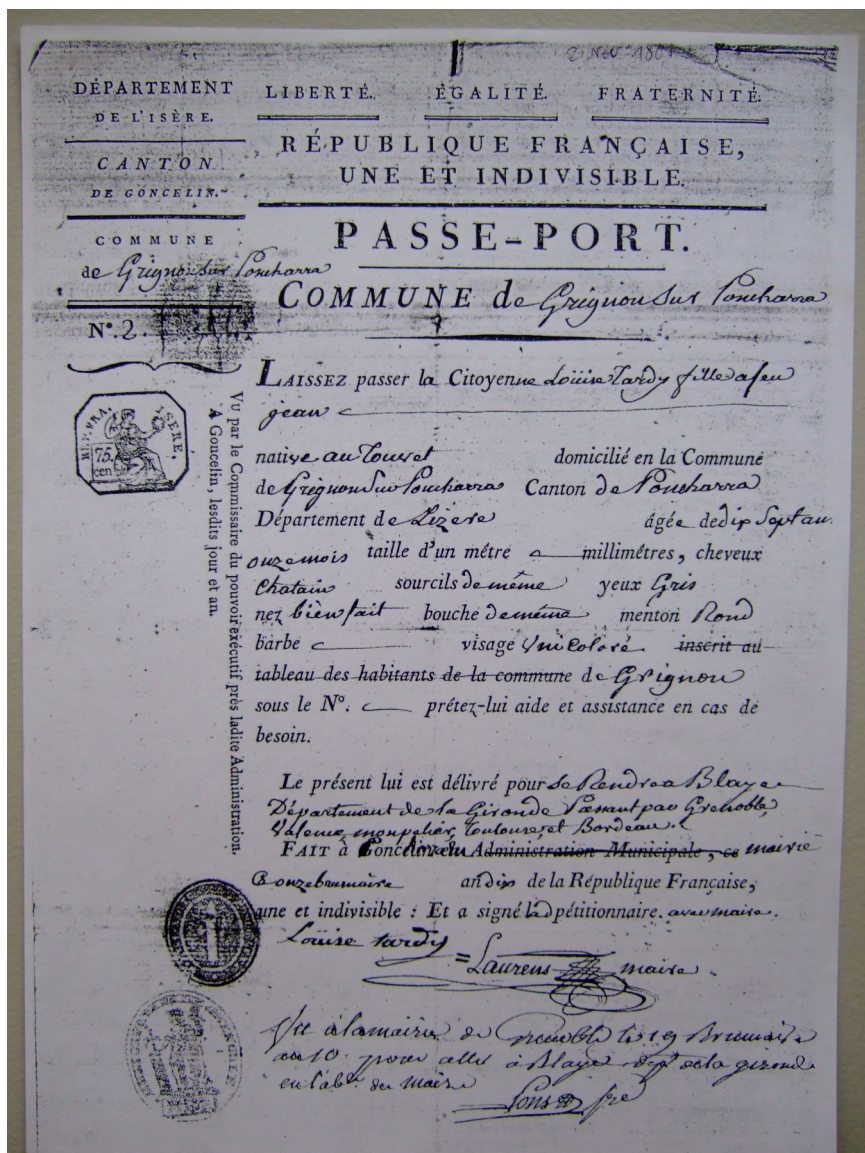 2 Nov 1801
DÉPARTEMENT
DE L'ISÈRE.
CANTON
DE GONCELIN.
COMMUNE
de Grignon sur Poncharra
N°. 2.
LIBERTÉ. ÉGALITÉ. FRATERNITÉ.
RÉPUBLIQUE FRANÇAISE,
UNE ET INDIVISIBLE.
PASSE-PORT.
COMMUNE de Grignon sur Poncharra
REP. FRA. ISERE.
75.
cen
Vu par le Commissaire du pouvoir exécutif près ladite Administration.
A Goncelin, lesdits jour et an.
LAISSEZ passer la Citoyenne Loüise Tardy fille a feu
jean
native au Touvet domicilié en la Commune
de Grignon Sur Poncharra Canton de Poncharra
Département de Lizere âgée de dix Sept an
onze mois taille d'un métre millimétres, cheveux
Chatain sourcils de même yeux Gris
nez bien fait bouche de même menton Rond
barbe visage Uni Coloré inscrit au
tableau des habitants de la commune de Grignon
sous le N°. prétez-lui aide et assistance en cas de
besoin.
Le présent lui est délivré pour Se Rendre a Blaye
Département de la Gironde Passant par Grenoble,
Valence, monpelier, Toulouse, et Bordeau.
FAIT à Goncelin Administration Municipale, ce mairie
onze brumaire an dix de la République Française,
une et indivisible : Et a signé la pétitionnaire. avec maire.
Loüise tardy
Laurens maire
Vu à la mairie de Grenoble le 19 Brumaire
an 10 pour aller à Blaye dept de la gironde
en l'abce du maire